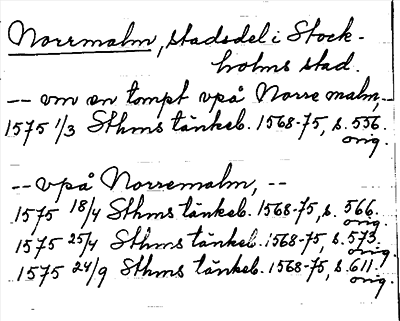 Norrmalm, stadsdel i Stock-
holms stad.
-- vm en tompt vpå Norre malm, --
1575 1/3 Sthms tänkeb. 1568-75, s. 556.
orig.
-- vpå Norremalm, --
1575 18/4 Sthms tänkeb. 1568-75, s. 566.
orig.
1575 25/4 Sthms tänkeb. 1568-75, s. 573.
orig.
1575 24/9 Sthms tänkeb. 1568-75, s. 611.
orig.